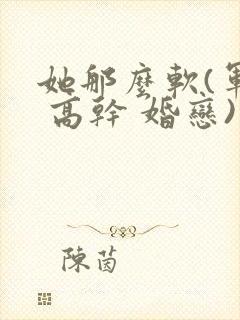 她那麼軟(軍
高幹 婚戀)
陳茵